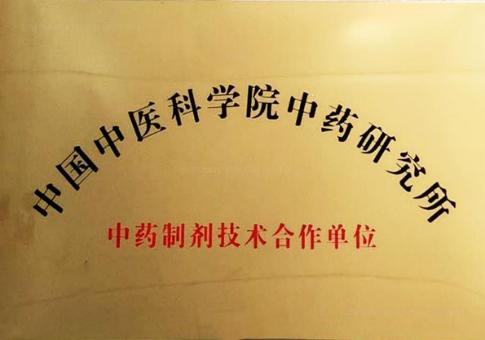 中国中医科学院中药研究所
中药制剂技术合作单位